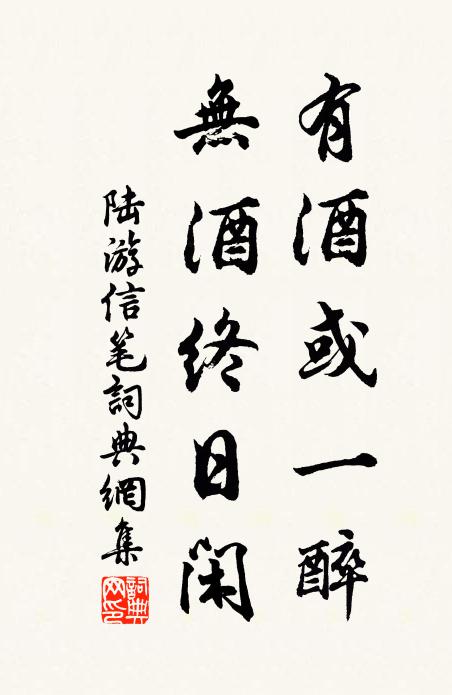 有酒或一醉
無酒終日閑
陆游信笔詞典網集
詞典網印